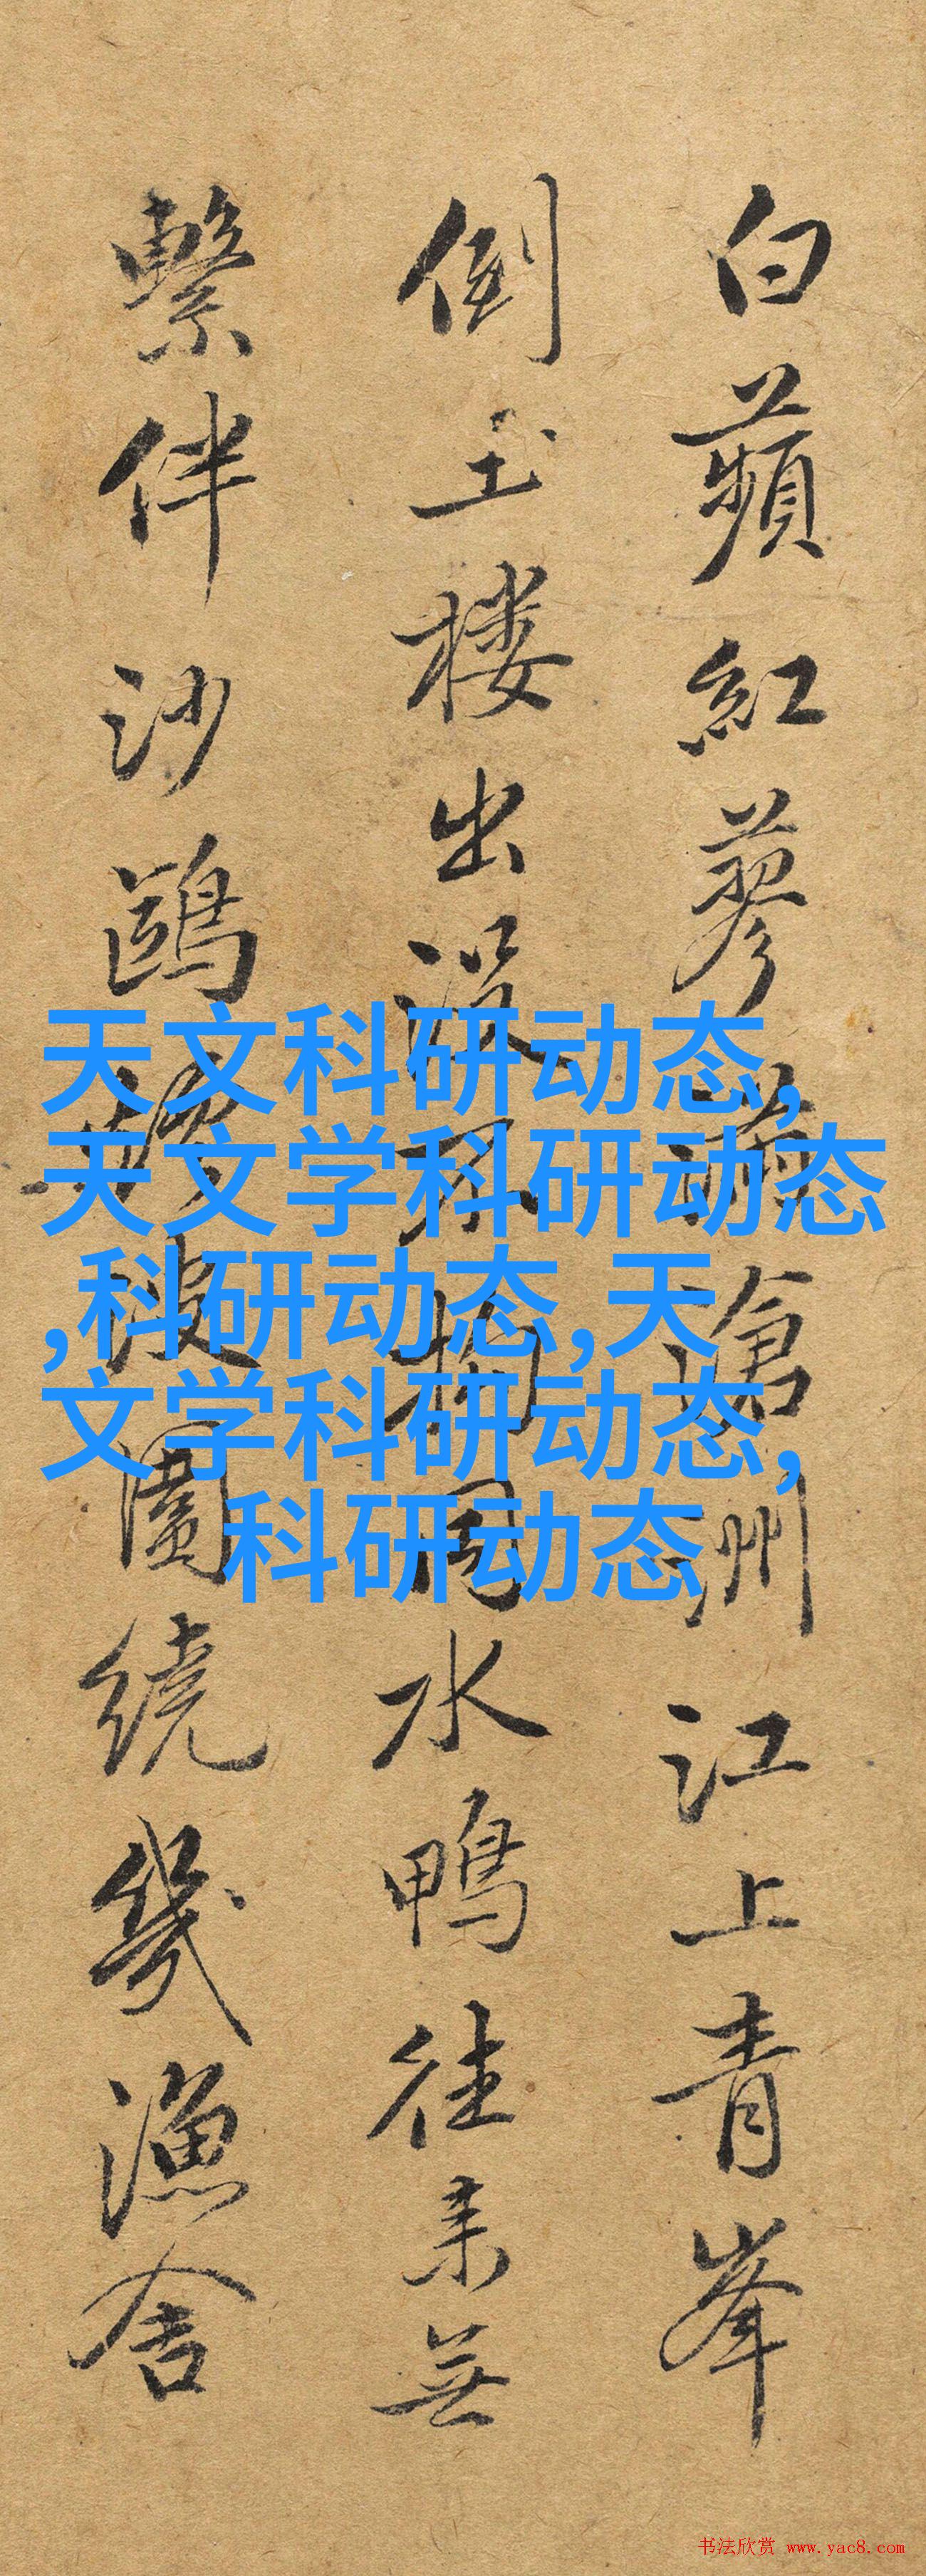 白蘋紅蓼滄洲江上青峯
倒玉楼出没不拘同水鴨往来無
繫伴沙鷗波圍繞幾漁舍
天文科研动态,
天文学科研动态
,科研动态,天
文学科研动态,
科研动态
书法欣赏 www.yac8.com